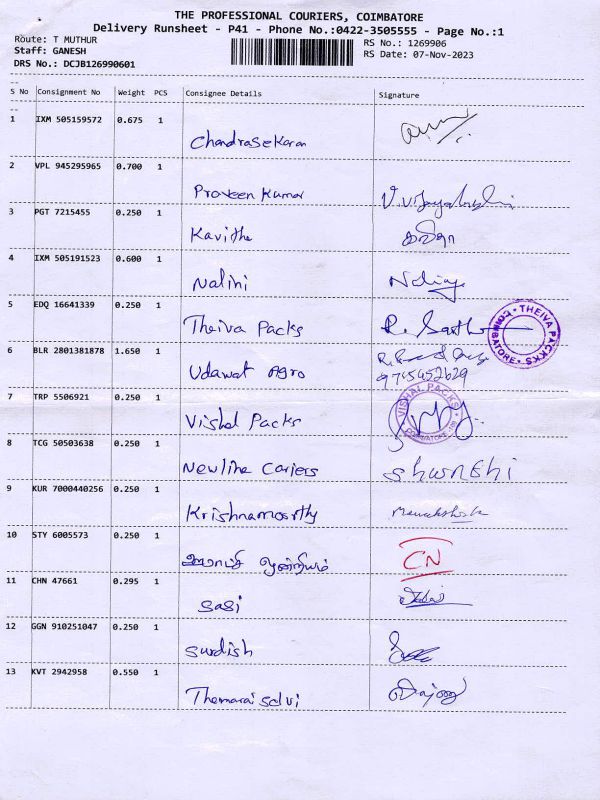 THE PROFESSIONAL COURIERS, COIMBATORE
Delivery Runsheet - P41 - Phone No.:0422-3505555 - Page No.:1
Route: T MUTHUR RS No.: 1269906
Staff: GANESH RS Date: 07-Nov-2023
DRS No.: DCJB126990601
S No Consignment No Weight PCS Consignee Details Signature
1 IXM 505159572 0.675 1
Chandrasekaran
2 VPL 945295965 0.700 1
Praveen Kumar
3 PGT 7215455 0.250 1
Kavitha கவிதா
4 IXM 505191523 0.600 1
Nalini
5 EDQ 16641339 0.250 1
Theiva Packs
THEIVA PACKS COIMBATORE
6 BLR 2801381878 1.650 1
Udawat Agro 9715452629
7 TRP 5506921 0.250 1
Vishal Packs
VISHAL PACKS
8 TCG 50503638 0.250 1
Newline Cariers
9 KUR 7000440256 0.250 1
Krishnamoorthy
10 STY 6005573 0.250 1
CN
11 CHN 47661 0.295 1
Sasi
12 GGN 910251047 0.250 1
Surdish
13 KVT 2942958 0.550 1
Themarai selvi